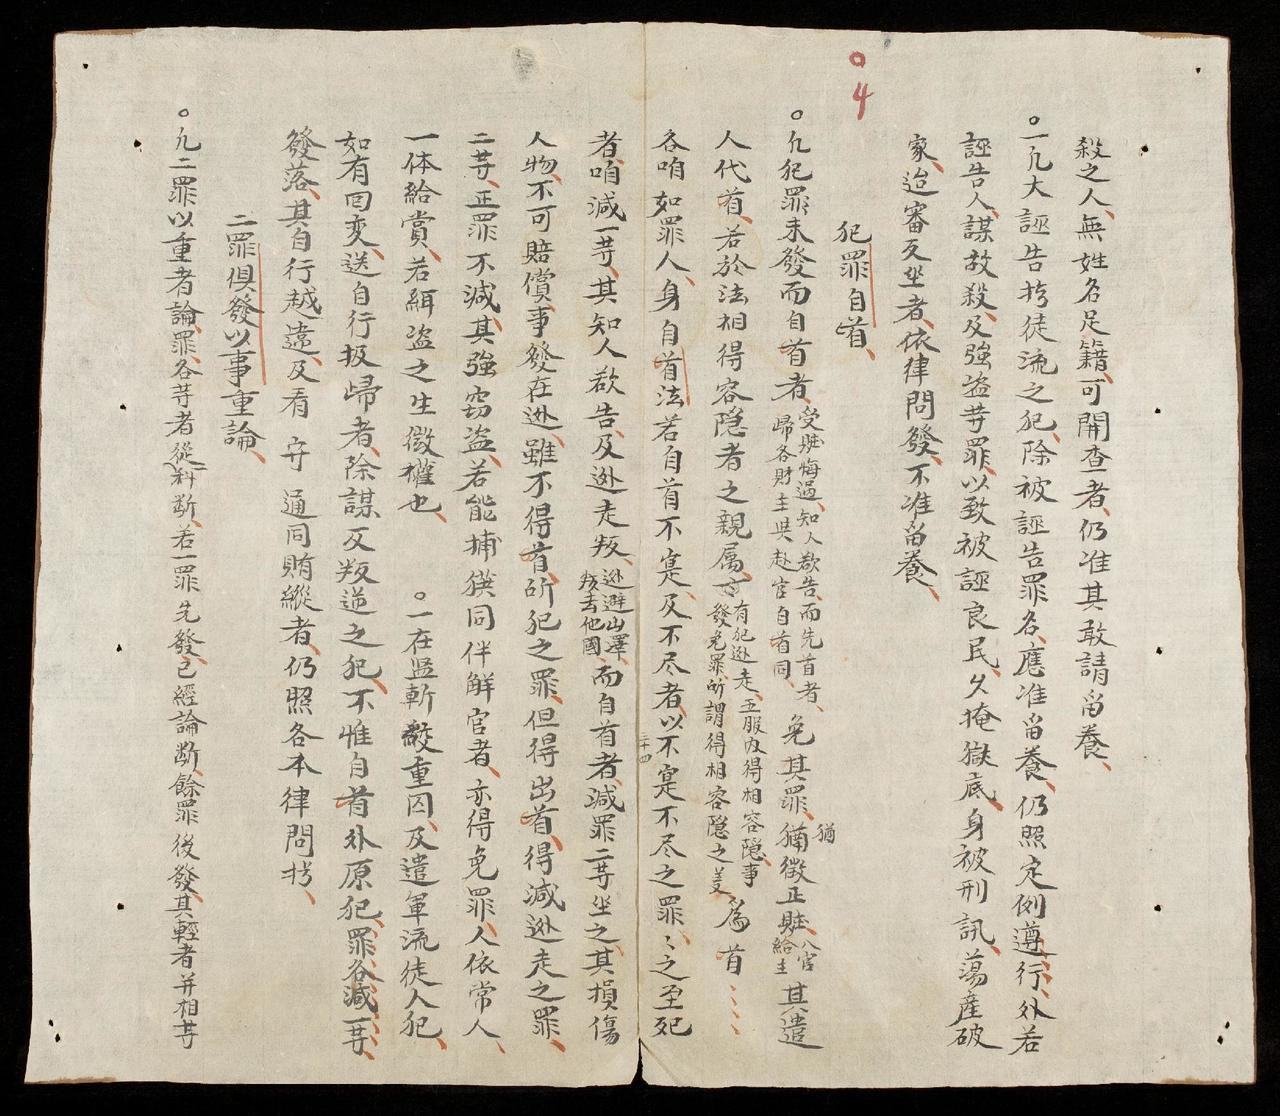 4
殺之人、無姓名足籍、可開查者、仍准其敢請留養、
一凡大誣告拟徒流之犯、除被誣告罪名、應准留養、仍照定例遵行、外若
誣告人、謀故殺、及強盗䓁罪、以致被誣良民、久掩獄底、身被刑訊、蕩産破
家、迨審反坐者、依律問發、不准留養、
犯罪自首、
凡犯罪未發而自首者、受賍悔過、知人欲告、而先首者、歸各財主與赴官自首同、免其罪、猶徵正賍、入官給主其遣
人代首、若於法相得容隱者之親属、有犯逊走、五服內得相容隐、事發免罪、所謂得相容隱之義、為首
各咱如罪人、身自首法若自首不寔、及不尽者、以不寔不尽之罪、〻之至死
三十四
者、咱减一䓁、其知人欲告、及逊走叛逊避山澤叛去他國、而自首者、减罪二䓁坐之、其損傷
人物、不可賠償、事發在逊、雖不得首、所犯之罪、但得出首、得减逊走之罪、
二䓁、正罪不減、其強窃盗、若能捕獲同伴解官者、亦得免罪、人依常人、
一体給賞、若緝盗之生徵獲也、
一在监斬絞重囚、及遣軍流徒人犯、
如有回変、送自行扳歸者、除謀反叛逆之犯、不惟自首外原犯、罪各減一䓁、
發落、其自行越遠、及看守通同賄縱者、仍照各本律問拟、
二罪俱發以事重論、
凡二罪以重者論罪、各䓁者從科断、若一罪先發、已經論断、餘罪後發、其輕者并相䓁